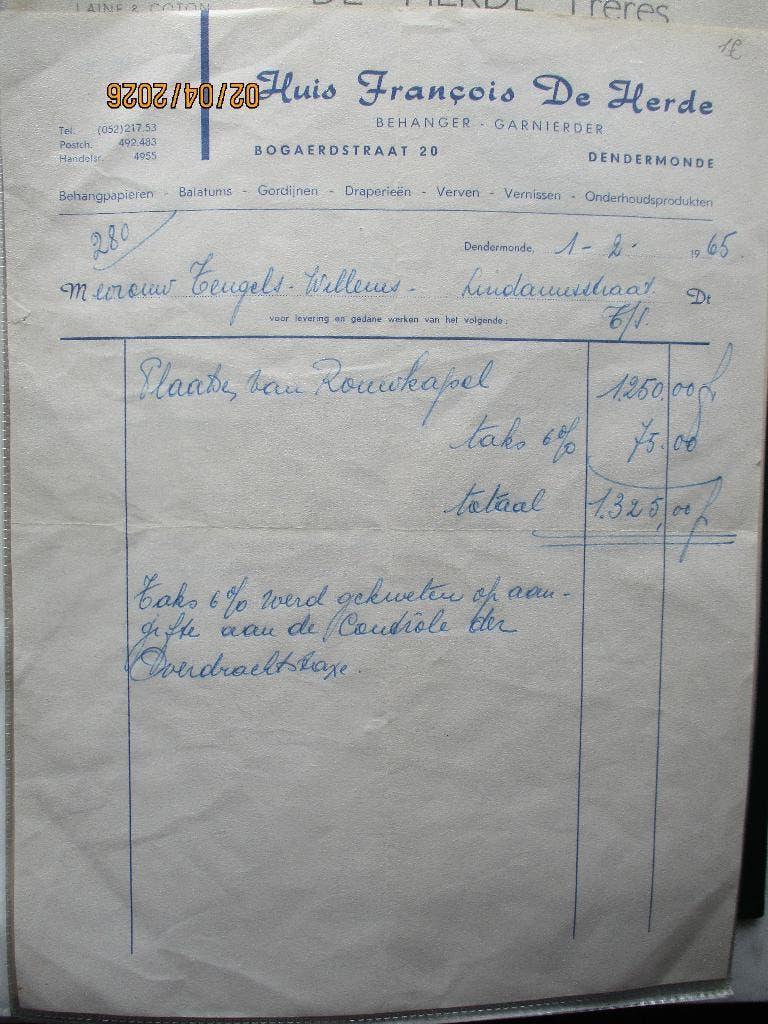 LAINE & COTON
DE HERDE Frères
1€
02/04/2026
Huis François De Herde
BEHANGER - GARNIERDER
Tel. (052)217.53
Postch. 492.483
Handelsr. 4955
BOGAERDSTRAAT 20
DENDERMONDE
Behangpapieren - Balatums - Gordijnen - Draperieën - Verven - Vernissen - Onderhoudsprodukten
280
Dendermonde, 1 - 2 - 1965
Mevrouw Tengels - Willems - Lindanusstraat Dt
T/S.
voor levering en gedane werken van het volgende:
Plaatsen van Rouwkapel 1250,00 f
taks 6% 75.00
totaal 1.325,00 f
Taks 6% werd gekweten op aan-
gifte aan de Contrôle der
Overdrachtstaxe.